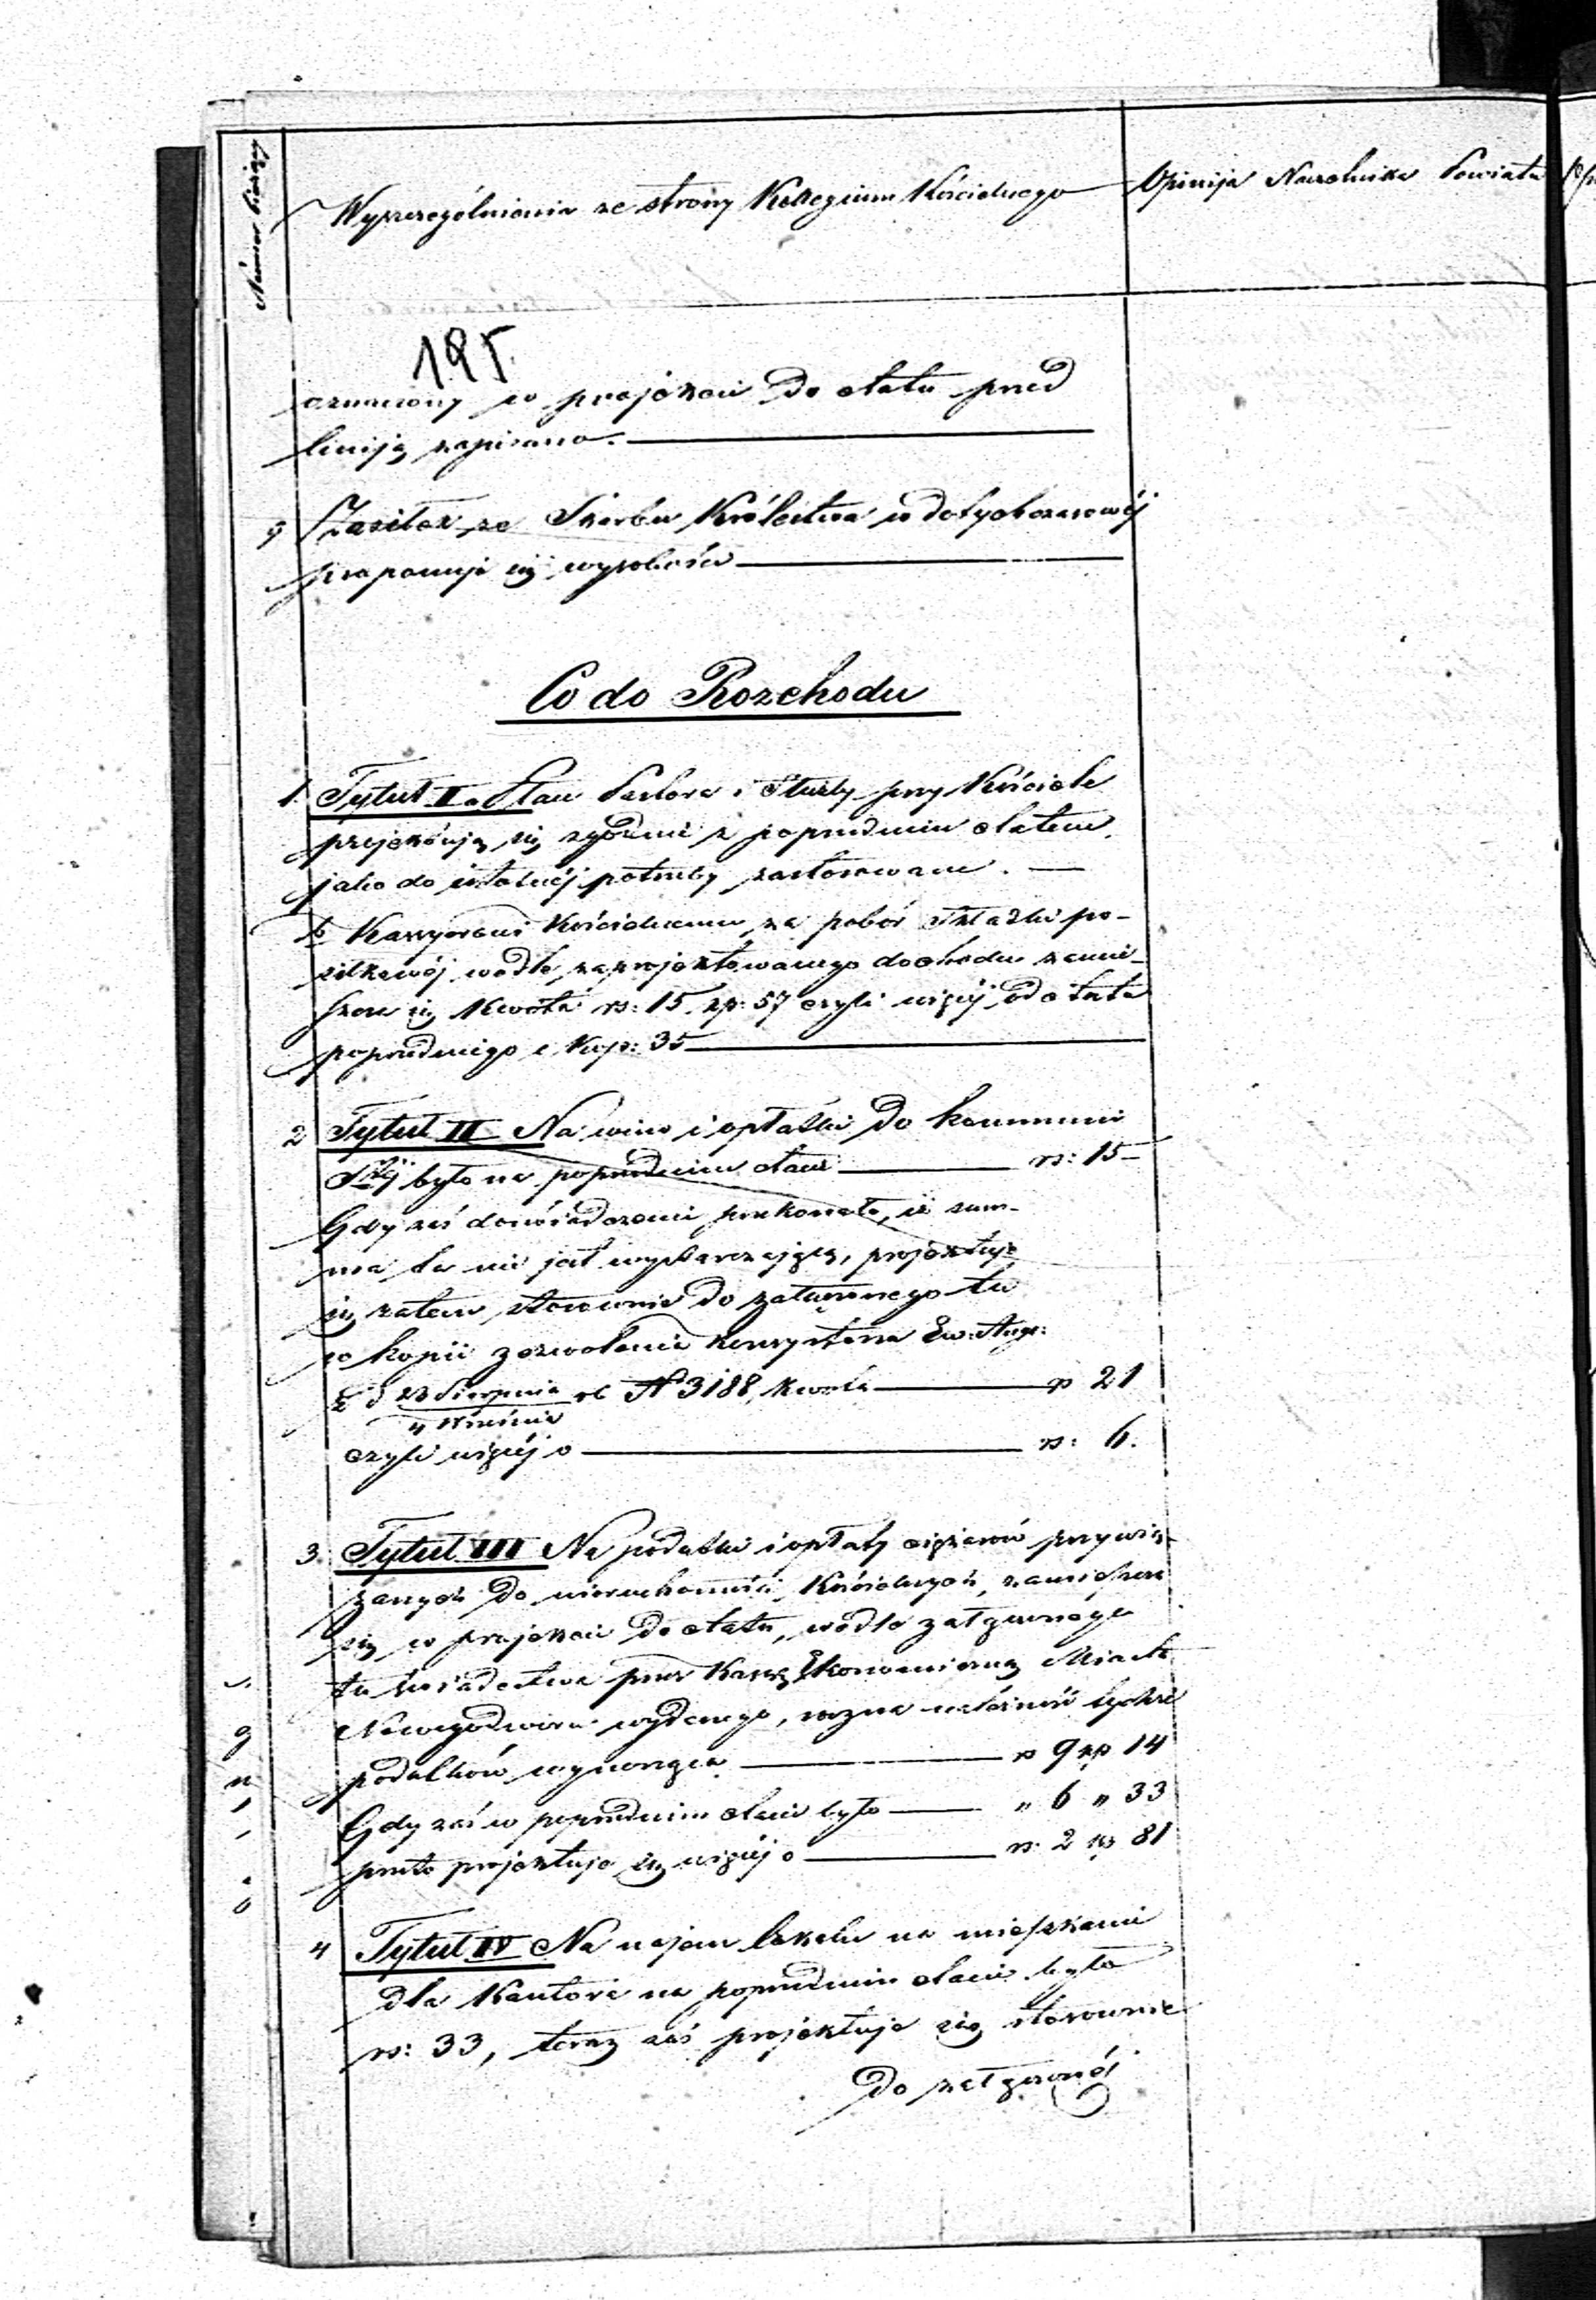 Numer bieżący
Wyszczególnienie ze strony Kollegium Kościelnego
Opinija Naczelnika Powiatu
195.
oznaczony w projekcie do etatu przed
liniją zapisano.
9 Zasiłek ze Skarbu Królestwa w dotychczasowéj
proponuje się wysokości
Co do Rozchodu
1. Tytuł I. a Płace Pastora i Służby przy Kościele
projektują się zgodnie z poprzednim etatem
jako do istotnéj potrzeby zastosowane.
b Kassyerowi Kościelnemu za pobór składki po-
siłkowéj wedle zaprojektowanego dochodu zamie-
szcza się kwota rs: 15 kp: 57 czyli więcéj od etatu
poprzedniego o kop: 35
2 Tytuł II Na wino i opłatki do kommunii
Stéj było na poprzednim etacie rs: 15
Gdy zaś doświadczenie przekonało, iż sum-
ma ta nie jest wystarczającą, projektuje
się zatem stosownie do załączonego tu
w kopii zezwolenia Konsystorza Ew: Augs:
z d 23 Sierpnia rb N 3188, kwota rs 21
4 Września
czyli więcéj o rs: 6.
3. Tytuł III Na podatki i opłaty ciężarów przywią-
zanych do nieruchomości Kościelnych, zamieszcza
się w projekcie do etatu, wedle załączonego
tu świadectwa przez Kassę Ekonomiczną Miasta
Nowegodworu wydanego, roczna należność tychże
podatków wynosząca rs 9 kp 14
Gdy zaś w poprzednim etacie było " 6 " 33
przeto projektuje się więcéj o rs. 2 kp 81
4 Tytuł IV Na najem lokalu na mieszkanie
dla Kantora na poprzednim etacie było
rs: 33, teraz zaś projektuje się stosownie
do załączonéj